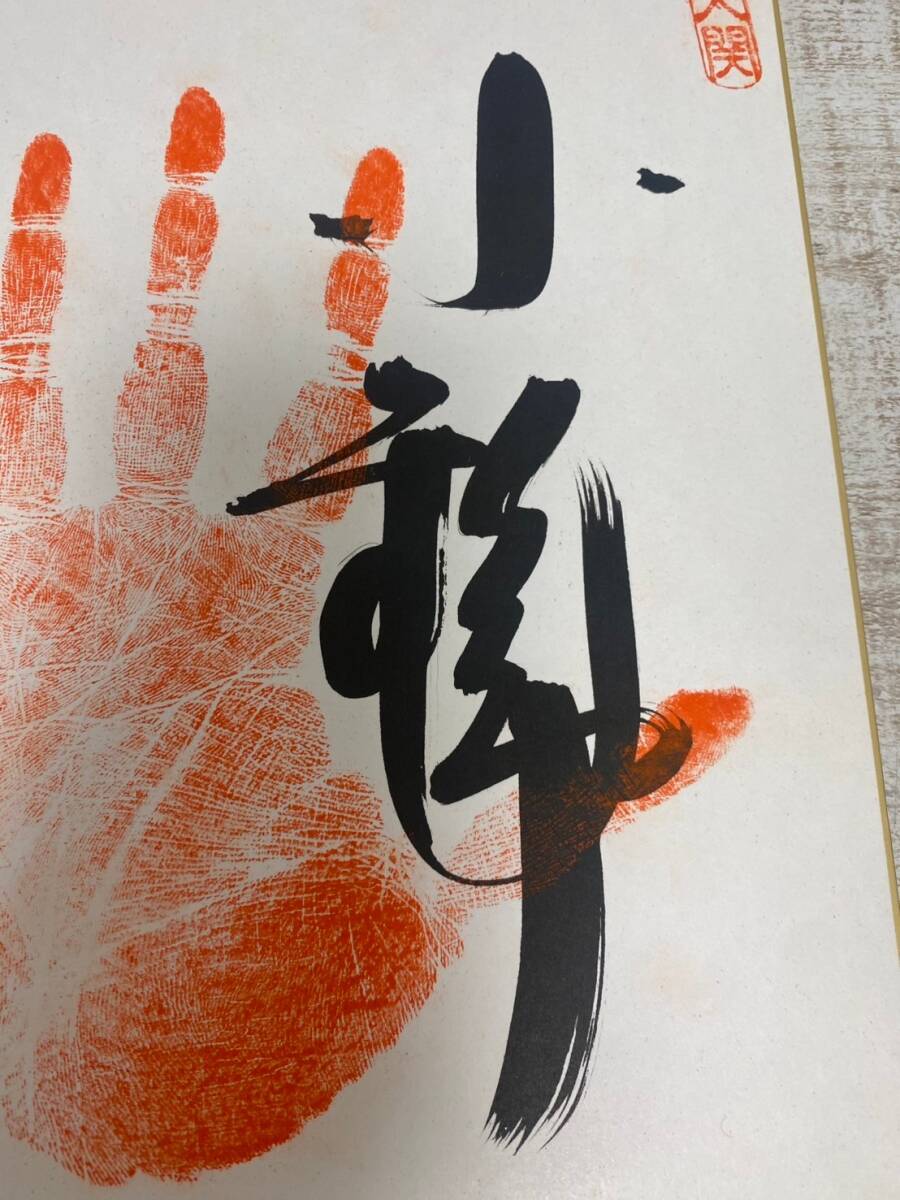 大関
小錦